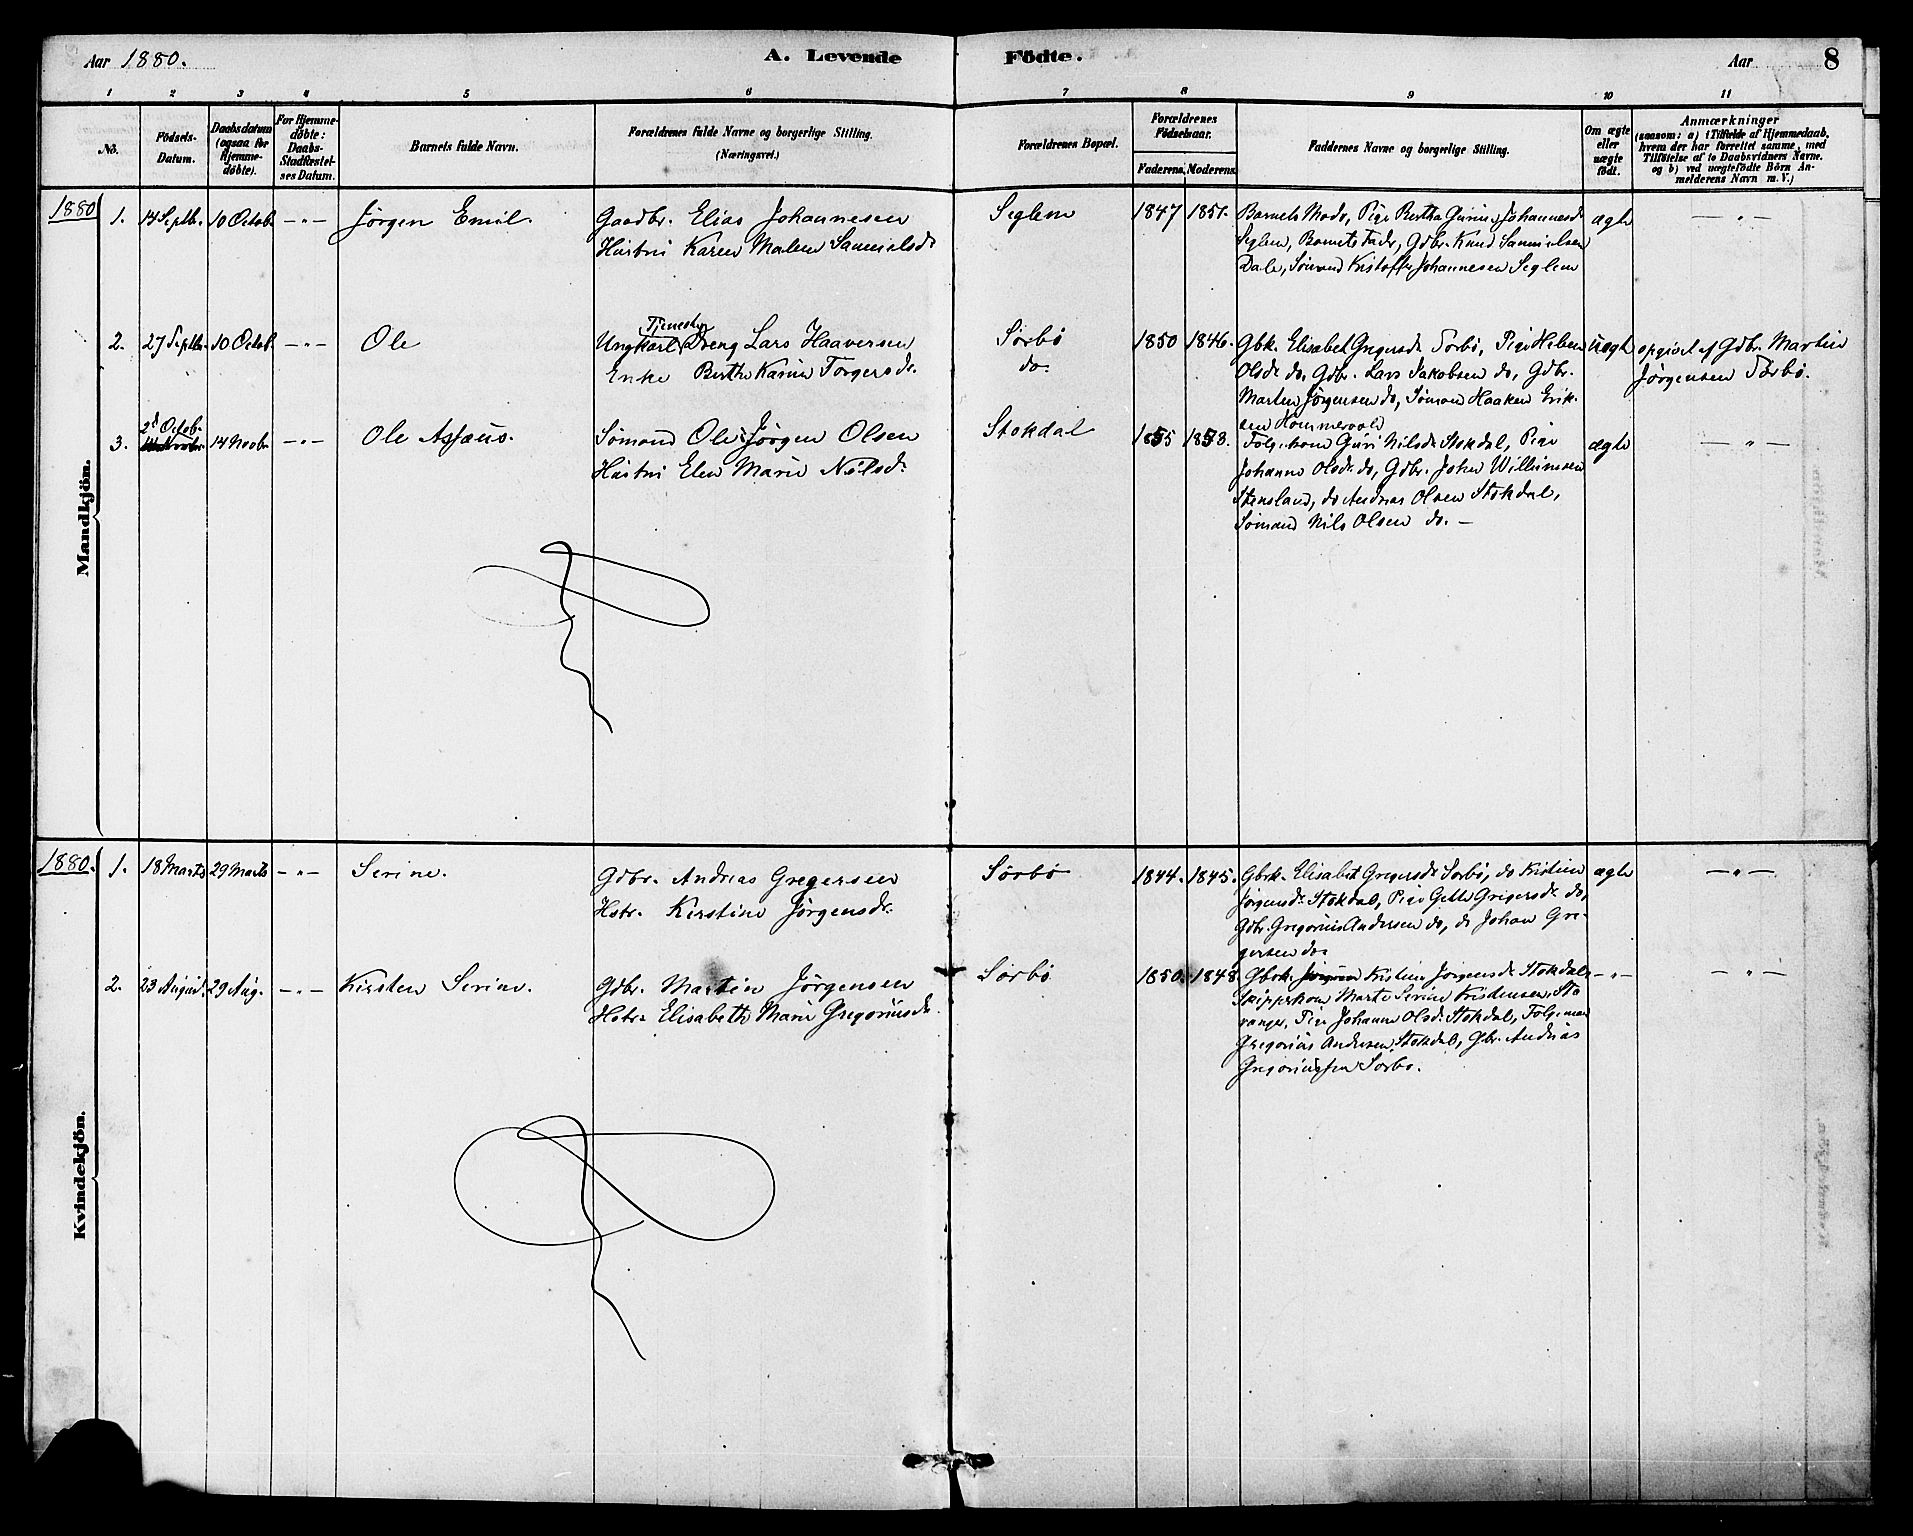 Aar 1880.
A. Levende Födte.
Aar
8
1 2 3 4 5 6 7 8 9 10 11
No.
Födsels-Datum.
Daabsdatum (ogsaa for Hjemme-döbte).
For Hjemme-döbte: Daabs-Stadfæstel-ses Datum.
Barnets fulde Navn.
Forældrenes fulde Navne og borgerlige Stilling.
(Næringsvei.)
Forældrenes Bopæl.
Forældrenes Födselsaar.
Faderens. Moderens.
Faddernes Navne og borgerlige Stilling.
Om ægte eller uægte födt.
Anmærkninger
(saasom: a) i Tilfælde af Hjemmedaab,
hvem der har forrettet samme, med
Tilföielse af to Daabsvidners Navne.
og b) ved uægtefödte Börn An-
melderens Navn m. V.)
Mandkjön.
1880
1. 14 Septb. 10 Octob. —"— Jørgen Emil.
Gaadbr. Elias Johannesen
Hustru Karen Malene Samuelsdr
Seglem 1847 1851.
Barnets Moder, Pige Bertha Gurine Johannesdr
Seglem, Barnets Fader, Gdbr. Knud Samuelsen
Dale, Sømand Kristoffer Johannesen Seglem
ægte —"—
2. 27 Septb. 10 Octob. —"— Ole
Tjeneste
Ungkarl Dreng Lars Haaversen
Enke Berthe Karine Torgersdr.
Sørbø
do.
1850 1846.
Gbk. Elisabet Gregersdr Sørbø, Pige Helene
Olsdr do, Gdbr. Lars Jakobsen do, Gdbr.
Marten Jørgensen do, Sømand Haaken Erik-
sen Hommervold
uægte
opgivet af Gdbr. Martin
Jørgensen Sørbø.
3. 2d Octob. 14 Novbr. —"— Ole Assæus.
Sømand Ole Jørgen Olsen
Hustru Elen Marie Nilsdr
Stokdal 1855 1858.
Folgekone Guri Nilsdr Stokdal, Pige
Johanne Olsdr do, Gdbr. John Willumsen
Stensland, do Andreas Olsen Stokdal,
Sømand Nils Olsen do. —
ægte —"—
Kvindekjön.
1880.
1. 18 Marts 29 Marts —"— Serine.
Gdbr. Andreas Gregersen
Hstr. Kirstine Jørgensdr.
Sørbø 1844. 1845.
Gbrk. Elisabet Gregersdr Sørbø, do Kristine
Jørgensdr Stokdal, Pige Gitte Gregersdr do,
Gdbr. Gregorius Andersen do, do Johan Gre-
gersen do.
ægte —"—
2. 23 August. 29 Aug. —"— Kirsten Serine.
Gdbr. Martin Jørgensen
Hstr. Elisabeth Marie Gregoriusdr
Sørbø 1850. 1848
Gbrk. Kristine Jørgensdr Stokdal
Skipperkone Marte Serine Kristensen, Sta-
vanger, Pige Johanne Olsdr Stokdal, Folgeman
Gregorius Andersen Stokdal, Gbr. Andreas
Gregoriussen Sørbø.
—"— —"—